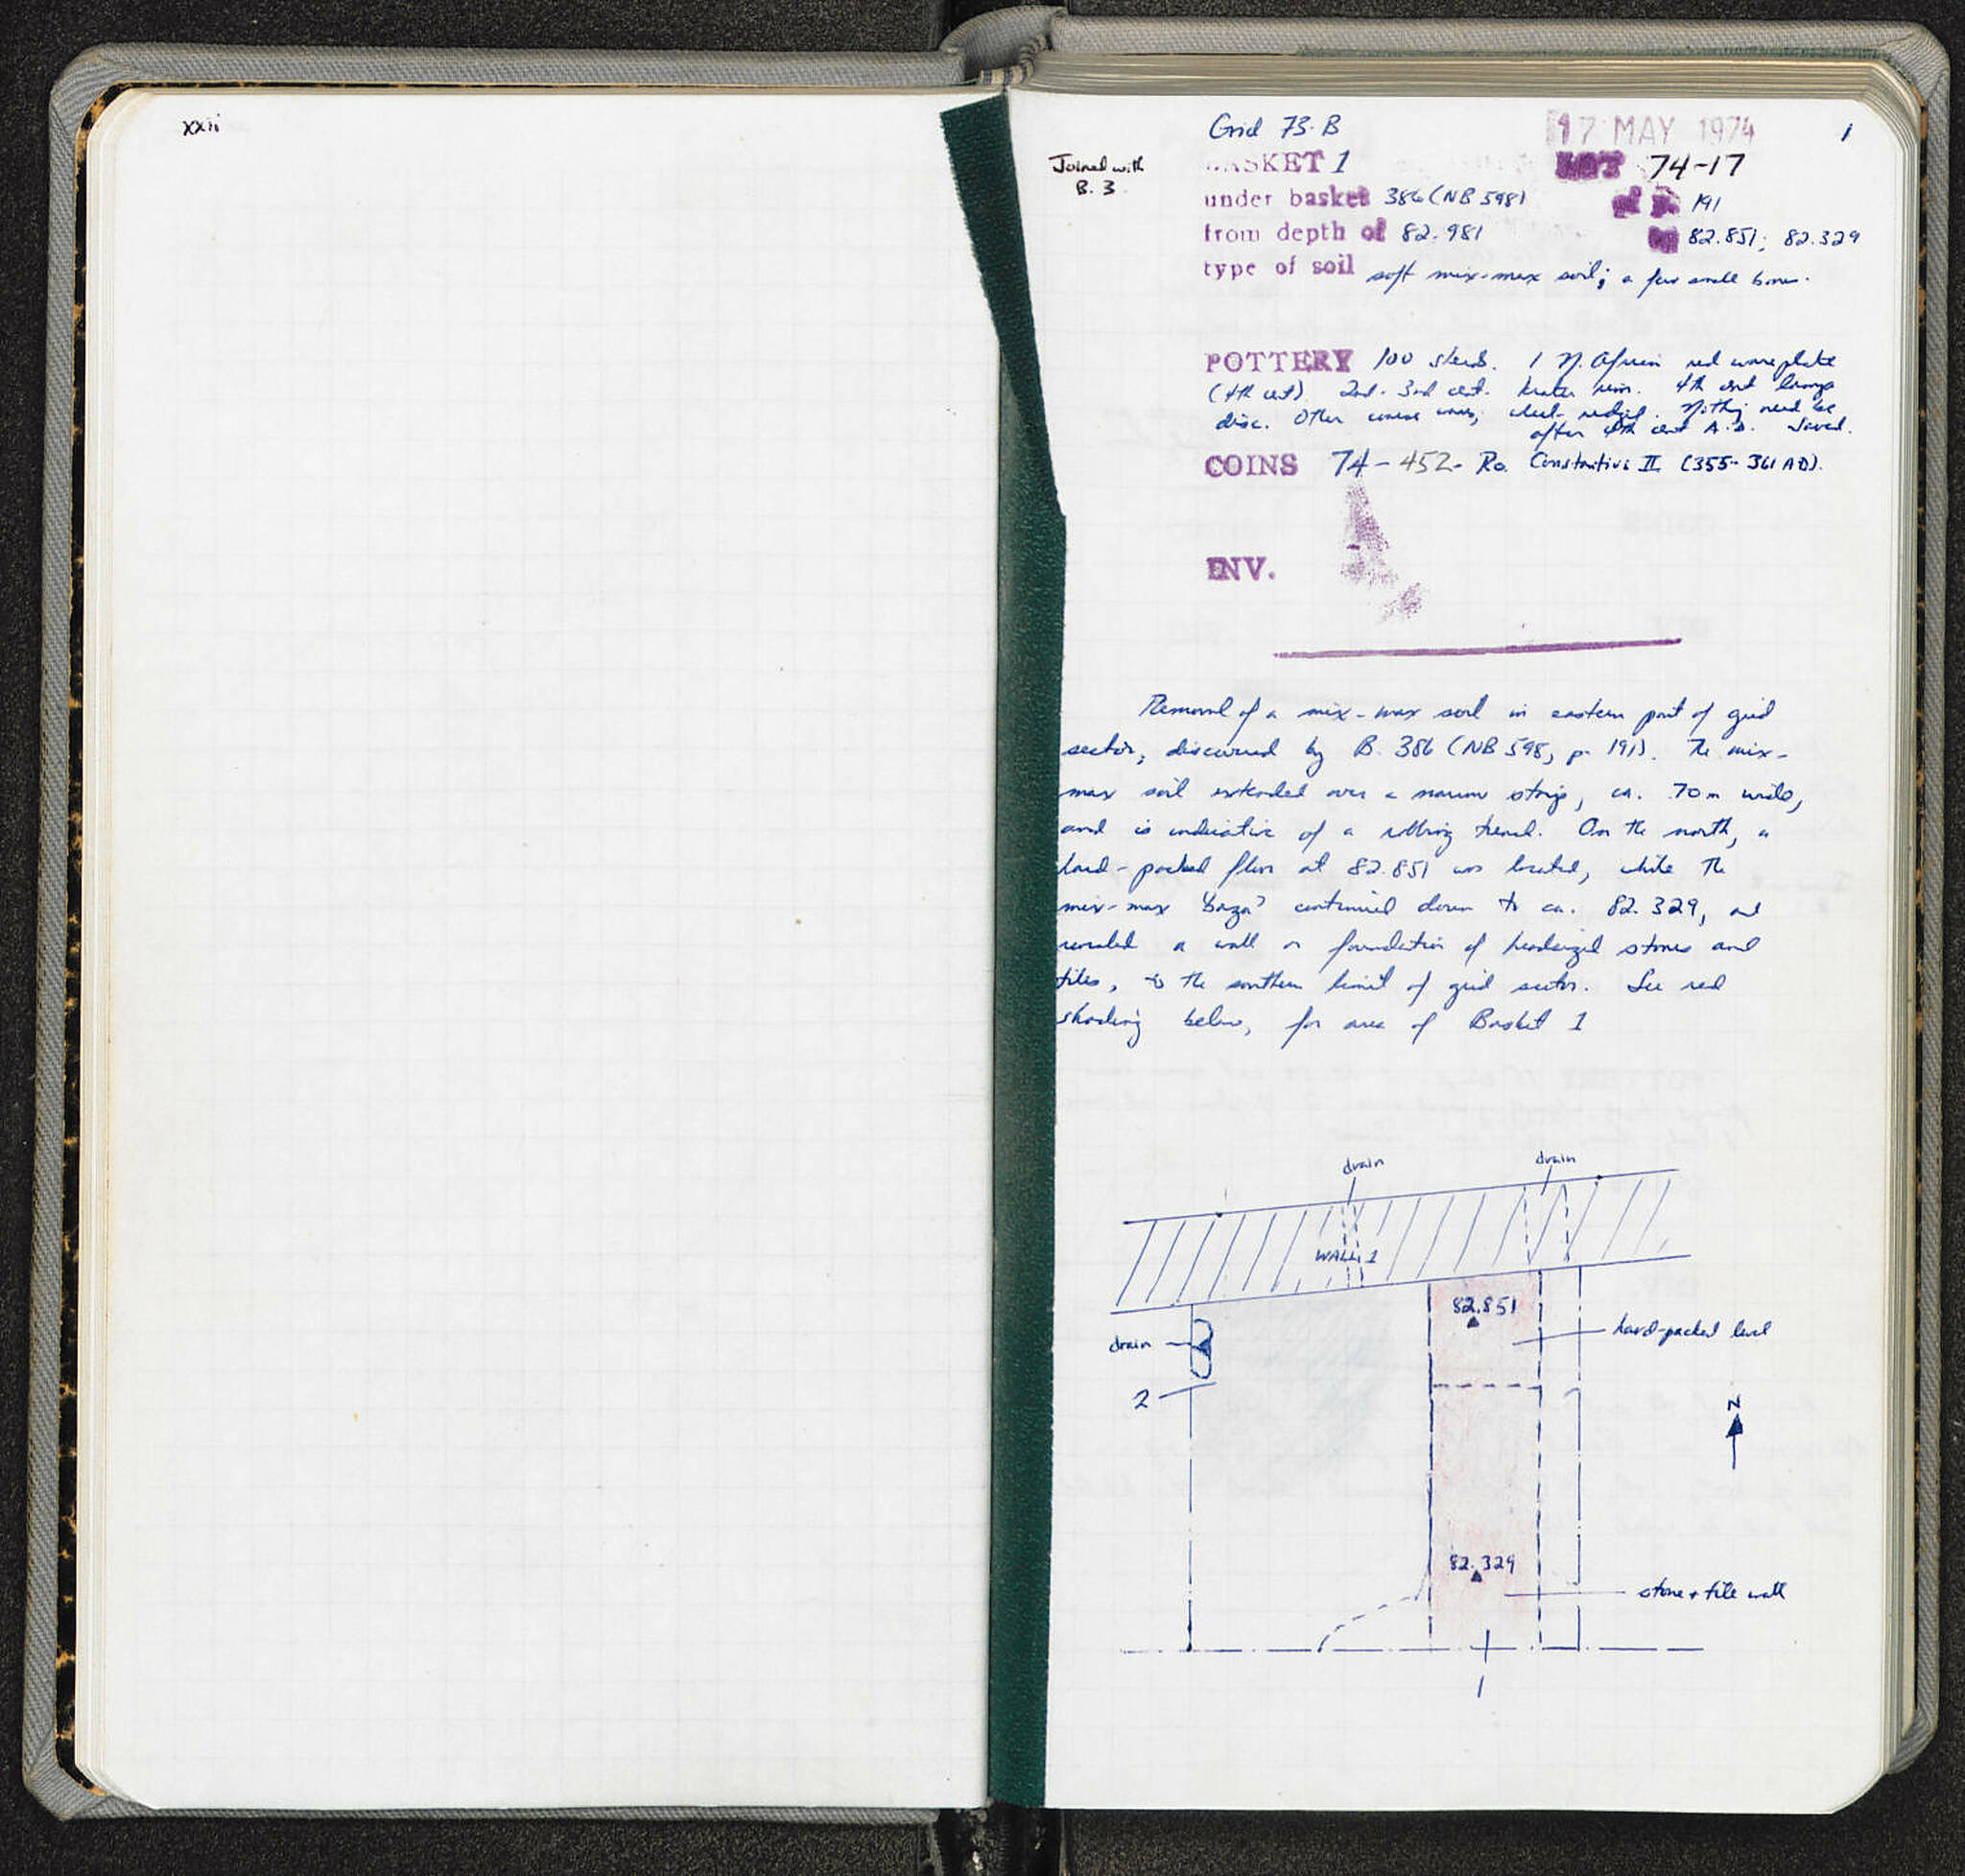 xxii
Grid 73-B
17 MAY 1974
1
Joined with
B. 3
BASKET 1
LOT 74-17
under basket 386 (NB 598)
of p. 191
from depth of 82.981
82.851; 82.329
type of soil soft mix-max soil; a few small bones.
POTTERY 100 sherds. 1 N. African red ware plate
(4th cent). 2nd-3rd cent. krater rim. 4th cent lamp
disc. Other coarse wares, wheel-ridged. Nothing need be
after 4th cent A.D. Saved.
COINS 74-452- Ro. Constantius II (355-361 AD).
ENV.
Removal of a mix-max soil in eastern part of grid
sector, discovered by B. 386 (NB 598, p. 191). The mix-
max soil extended over a narrow strip, ca. .70m wide,
and is indicative of a robbing trench. On the north, a
hard-packed floor at 82.851 was located, while the
mix-max continued down to ca. 82.329, and
revealed a wall or foundation of headsized stones and
tiles, to the southern limit of grid sector. See red
shading below, for area of Basket 1
drain
drain
WALL 1
82.851
drain
hard-packed level
2
N
82.329
stone + tile wall
1